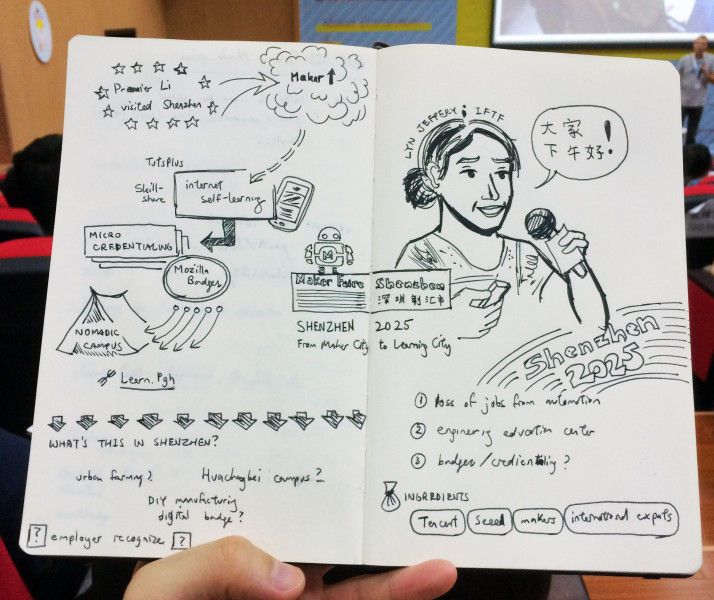 Premier Li
visited Shenzhen
Maker ↑
TutsPlus
Skill-
share
internet
self-learning
MICRO
CREDENTIALING
Mozilla
Badges
NOMADIC
CAMPUS
Learn.Pgh
WHAT'S THIS IN SHENZHEN?
urban farming?
Huachagbei campus?
DIY manufacturing
digital badge?
? employer recognize ?
M
Maker Faire Shenzhen
深圳制汇节
SHENZHEN 2025
From Maker City to Learning City
LYN JEFFERY; IFTF
大家
下午好!
Shenzhen
2025
① loss of jobs from automation
② engineering education center
③ badges/credientialing?
INGREDIENTS
Tencent seeed makers international expats